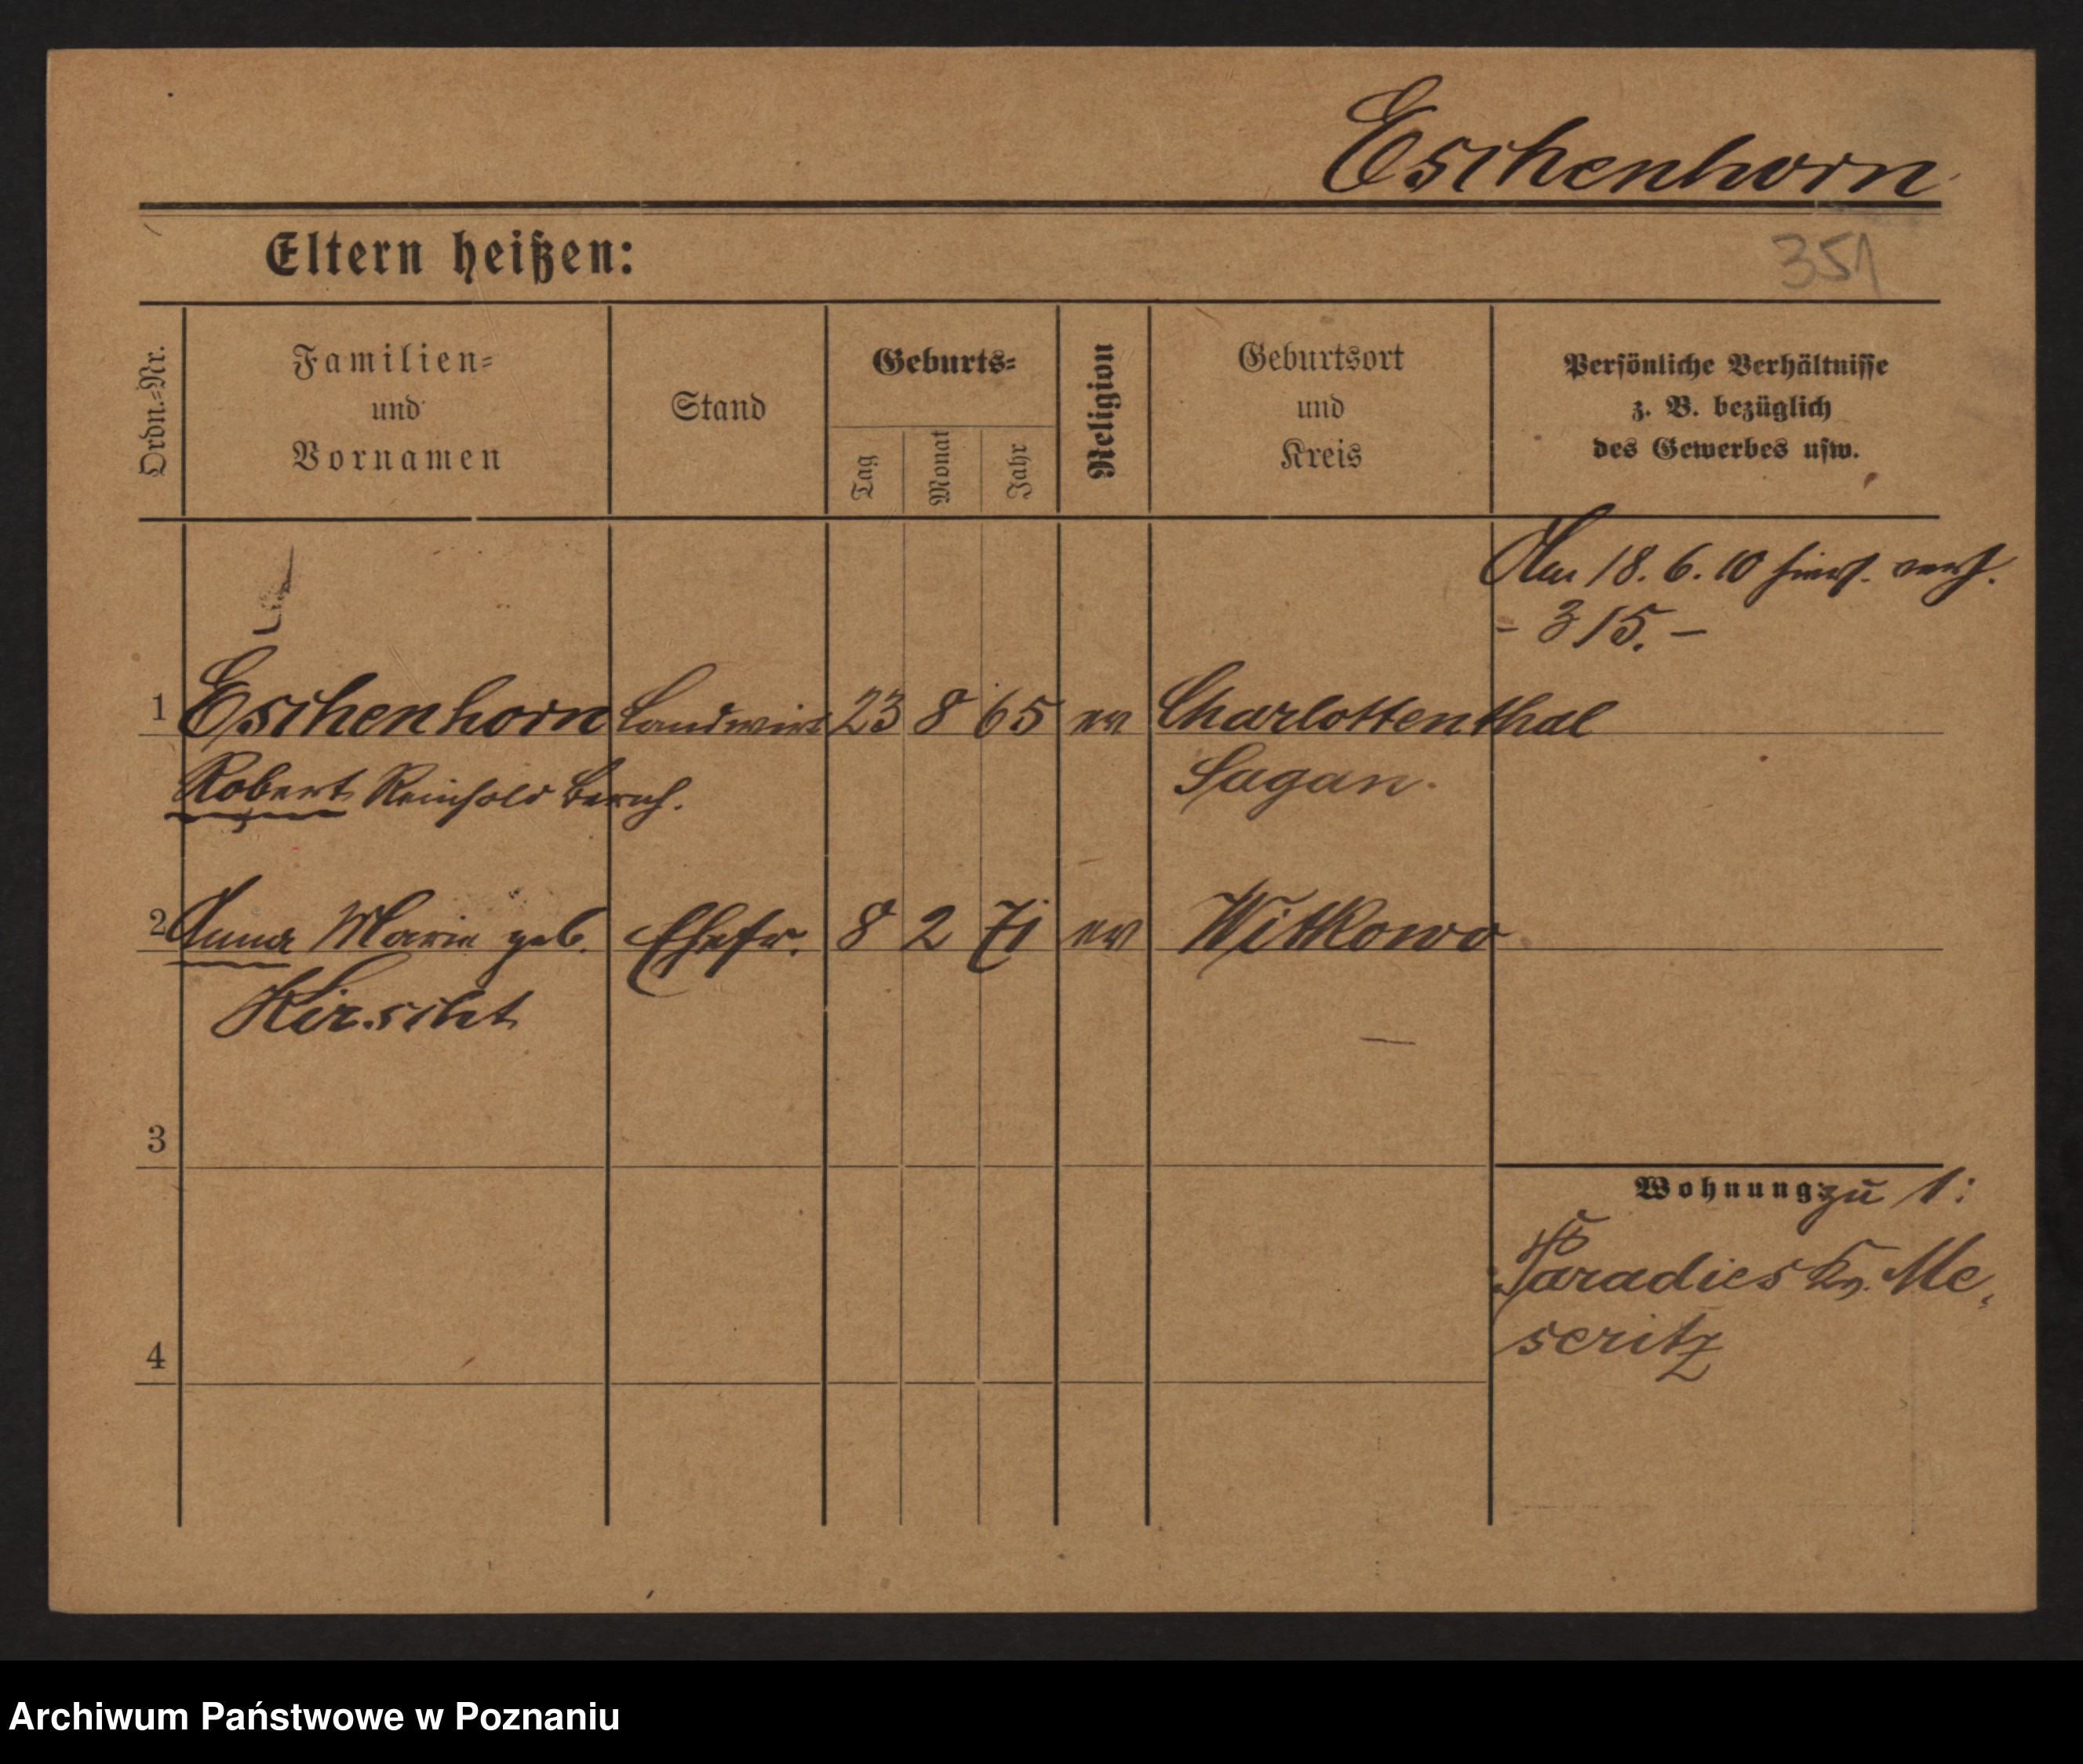 Eschenhorn
Eltern heißen:
351
Ordn.=Nr.
Familien=
und
Vornamen
Stand
Geburts=
Tag
Monat
Jahr
Religion
Geburtsort
und
Kreis
Persönliche Verhältnisse
z. B. bezüglich
des Gewerbes usw.
Am 18. 6. 10 hierh. verh.
- 315. -
1 Eschenhorn Landwirt 23 8 65 ev Charlottenthal
Robert Reinhold Sagan.
2 Anna Marie geb. Ehefr. 8 2 71 ev Witkowo
Hirscht
3
Wohnung zu 1:
Paradies Kr. Me-
seritz
4
Archiwum Państwowe w Poznaniu